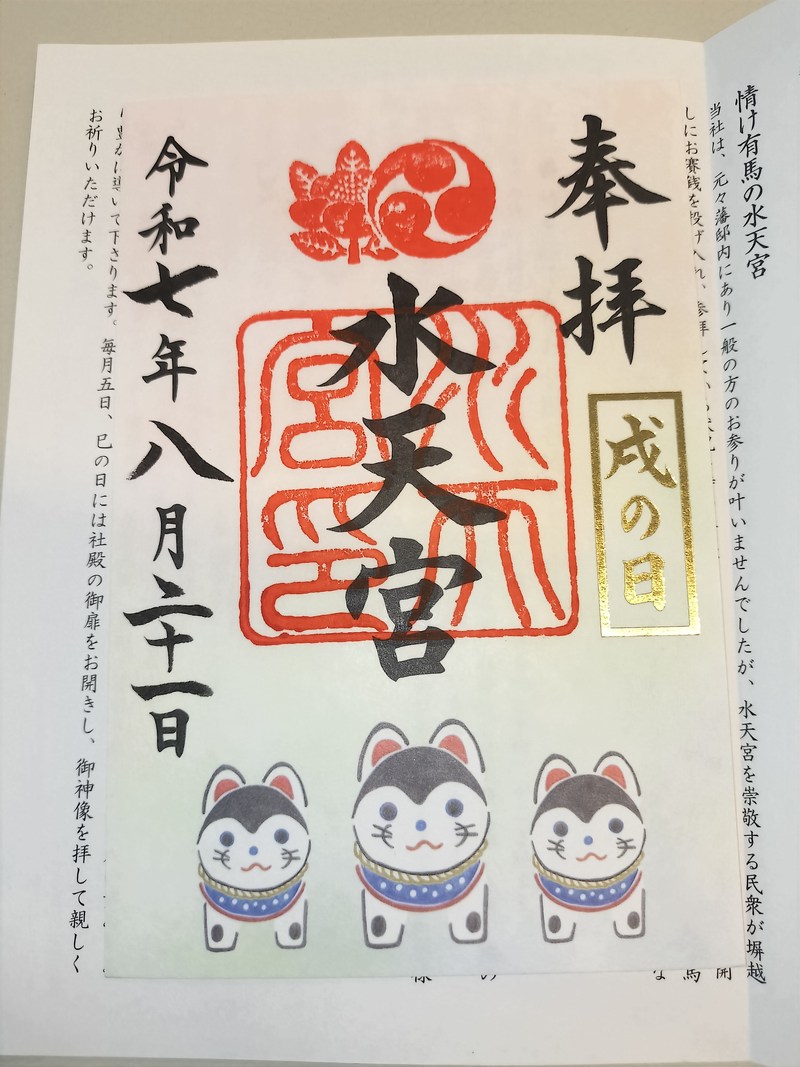 情け有馬の水天宮
当社は、元々藩邸内にあり一般の方のお参りが叶いませんでしたが、水天宮を崇敬する民衆が塀越
しにお賽銭を投げ入れ、参拝し
奉拝
戌の日
水天宮
水天宮印
令和七年八月二十一日
豊かに導いて下さります。毎月五日、巳の日には社殿の御扉をお開きし、御神像を拝して親しく
お祈りいただけます。